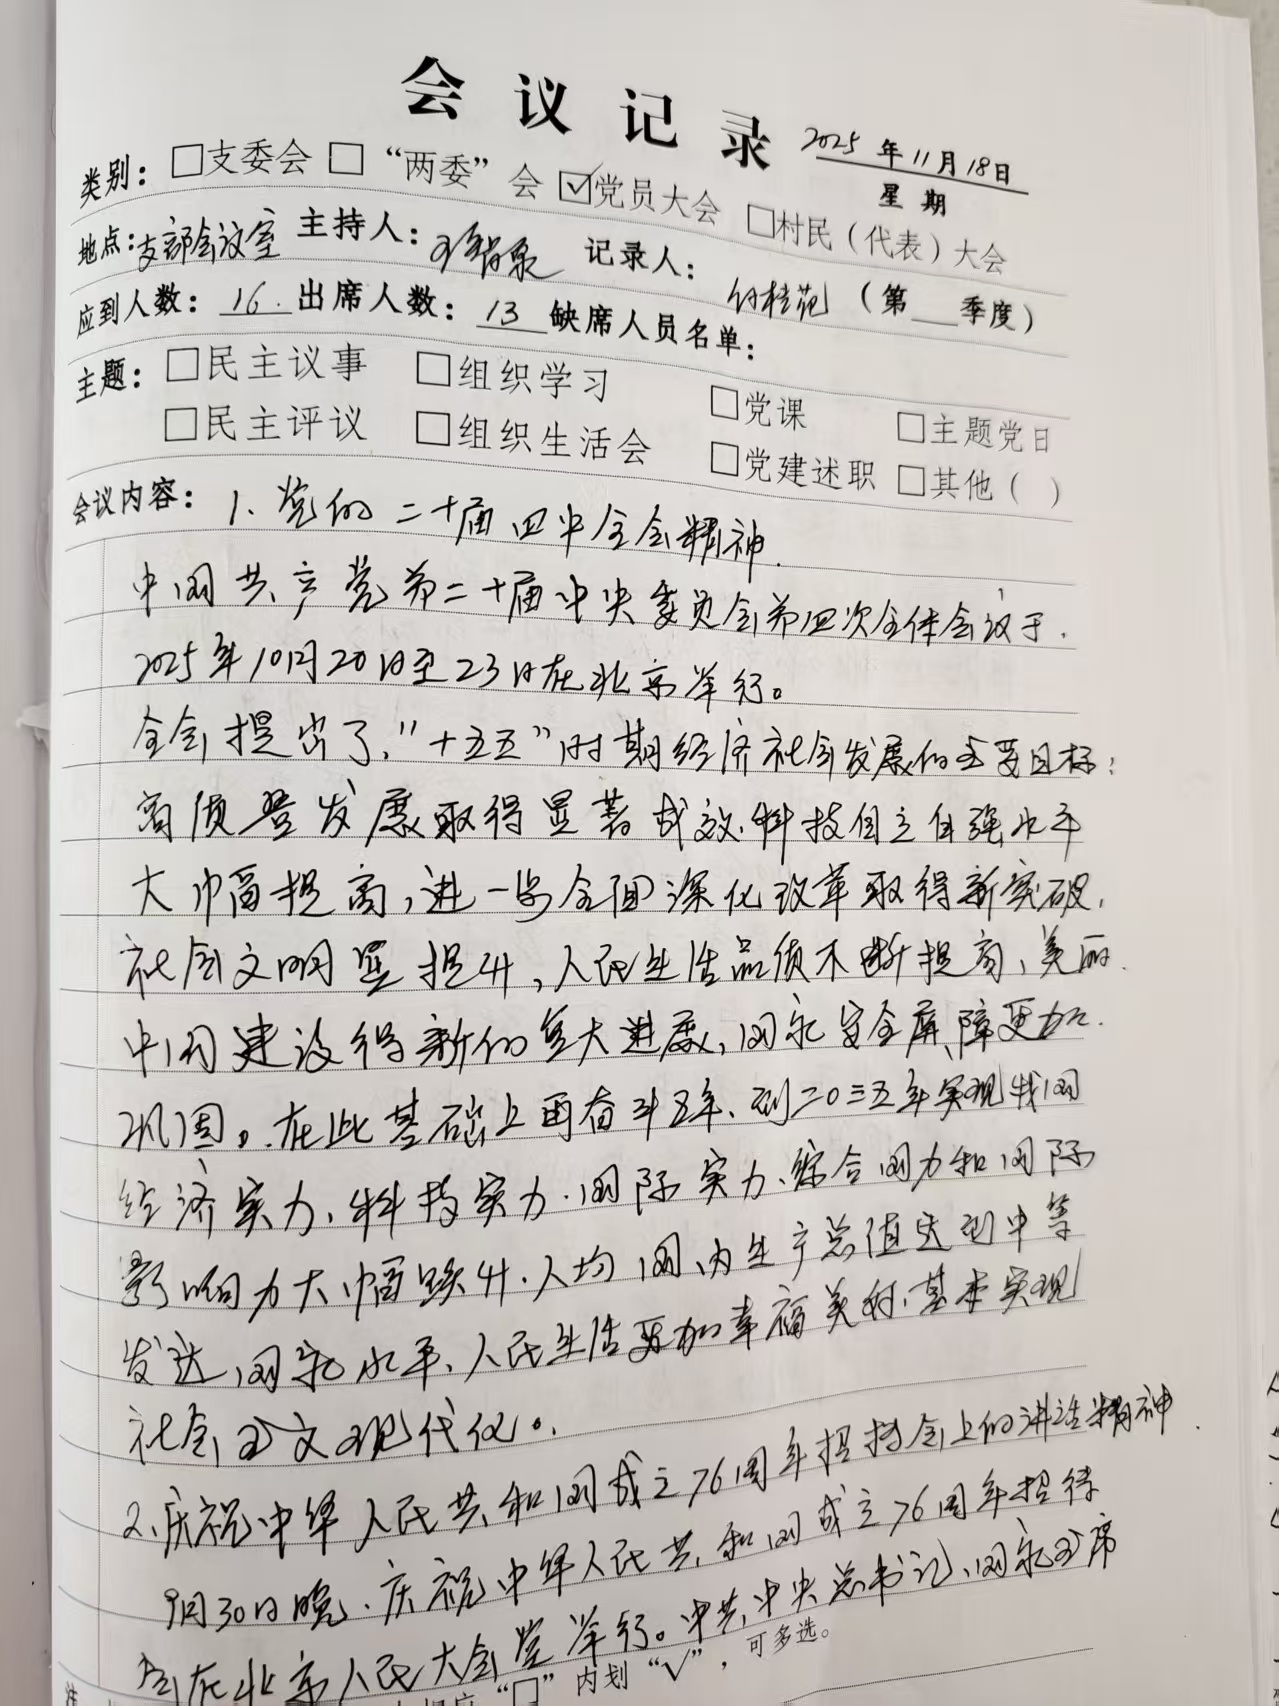 会议记录
2025年11月18日
星期
类别：□支委会 □“两委”会 ☑党员大会 □村民（代表）大会
地点：支部会议室 主持人： 记录人：付桂花（第 季度）
应到人数：16 出席人数：13 缺席人员名单：
主题：□民主议事 □组织学习 □党课 □主题党日
□民主评议 □组织生活会 □党建述职 □其他（ ）
会议内容：1、党的二十届四中全会精神.
中国共产党第二十届中央委员会第四次全体会议于
2025年10月20日至23日在北京举行。
全会提出了，“十五五”时期经济社会发展的主要目标：
高质量发展取得显著成效、科技自立自强水平
大幅提高，进一步全面深化改革取得新突破，
社会文明显提升，人民生活品质不断提高、美丽
中国建设得新的复大进展，国家安全屏障更加
巩固。在此基础上再奋斗五年、到二〇三五年实现我国
经济实力、科技实力、国际实力、综合国力和国际
影响力大幅跃升、人均国内生产总值达到中等
发达国家水平、人民生活更加幸福美好、基本实现
社会主义现代化。
2、庆祝中华人民共和国成立76周年招待会上的讲话精神
9月30日晚、庆祝中华人民共和国成立76周年招待
会在北京人民大会堂举行。中共中央总书记、国家主席
“□”内划“√”，可多选。